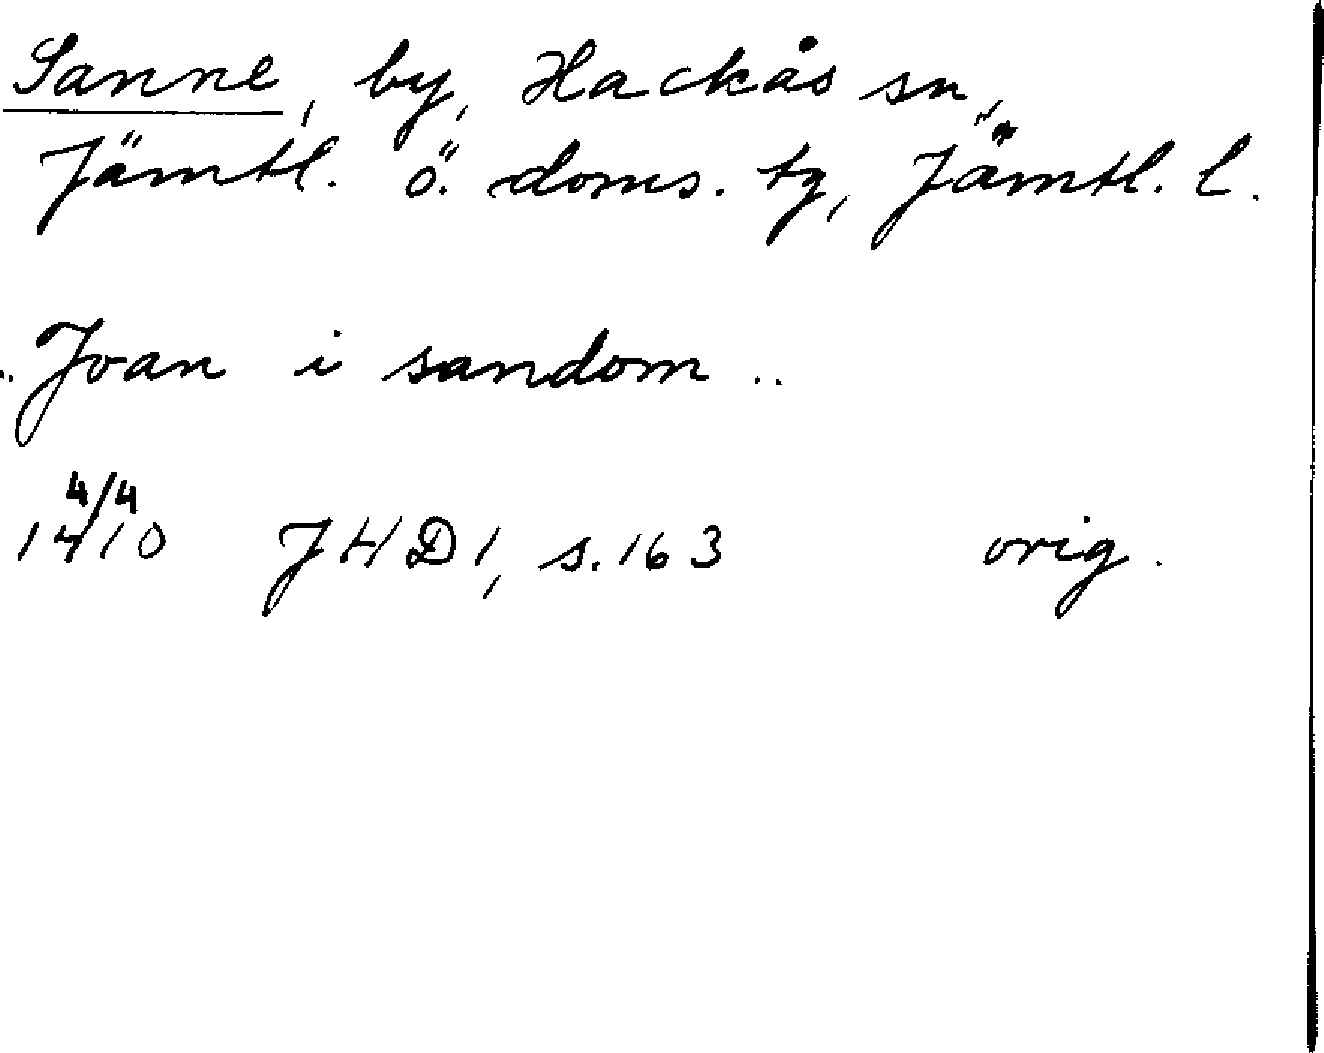 Sanne, by, Hackås sn,
Jämtl. ö. doms. tg, Jämtl. l.
.. Joan i sandom ..
4/4
1410 JHD1, s. 163 orig.